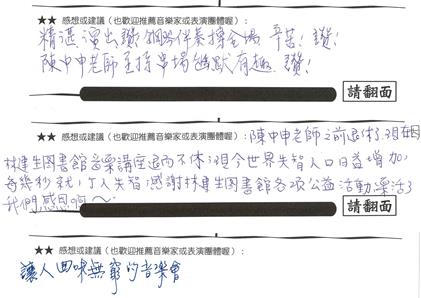 ★★ 感想或建議（也歡迎推薦音樂家或表演團體喔）：
精湛演出讚！鋼琴伴奏撐全場 辛苦！讚！
陳中申老師主持串場幽默有趣 讚！
請翻面
★★ 感想或建議（也歡迎推薦音樂家或表演團體喔）：陳中申老師之前退休了，現在因
林建生圖書館音樂講座退而不休！現今世界失智人口日益增加，
每幾秒就1人失智，感謝林建生圖書館各項公益活動，樂活了
我們，感恩啊～
請翻面
★★ 感想或建議（也歡迎推薦音樂家或表演團體喔）：
讓人回味無窮的音樂會